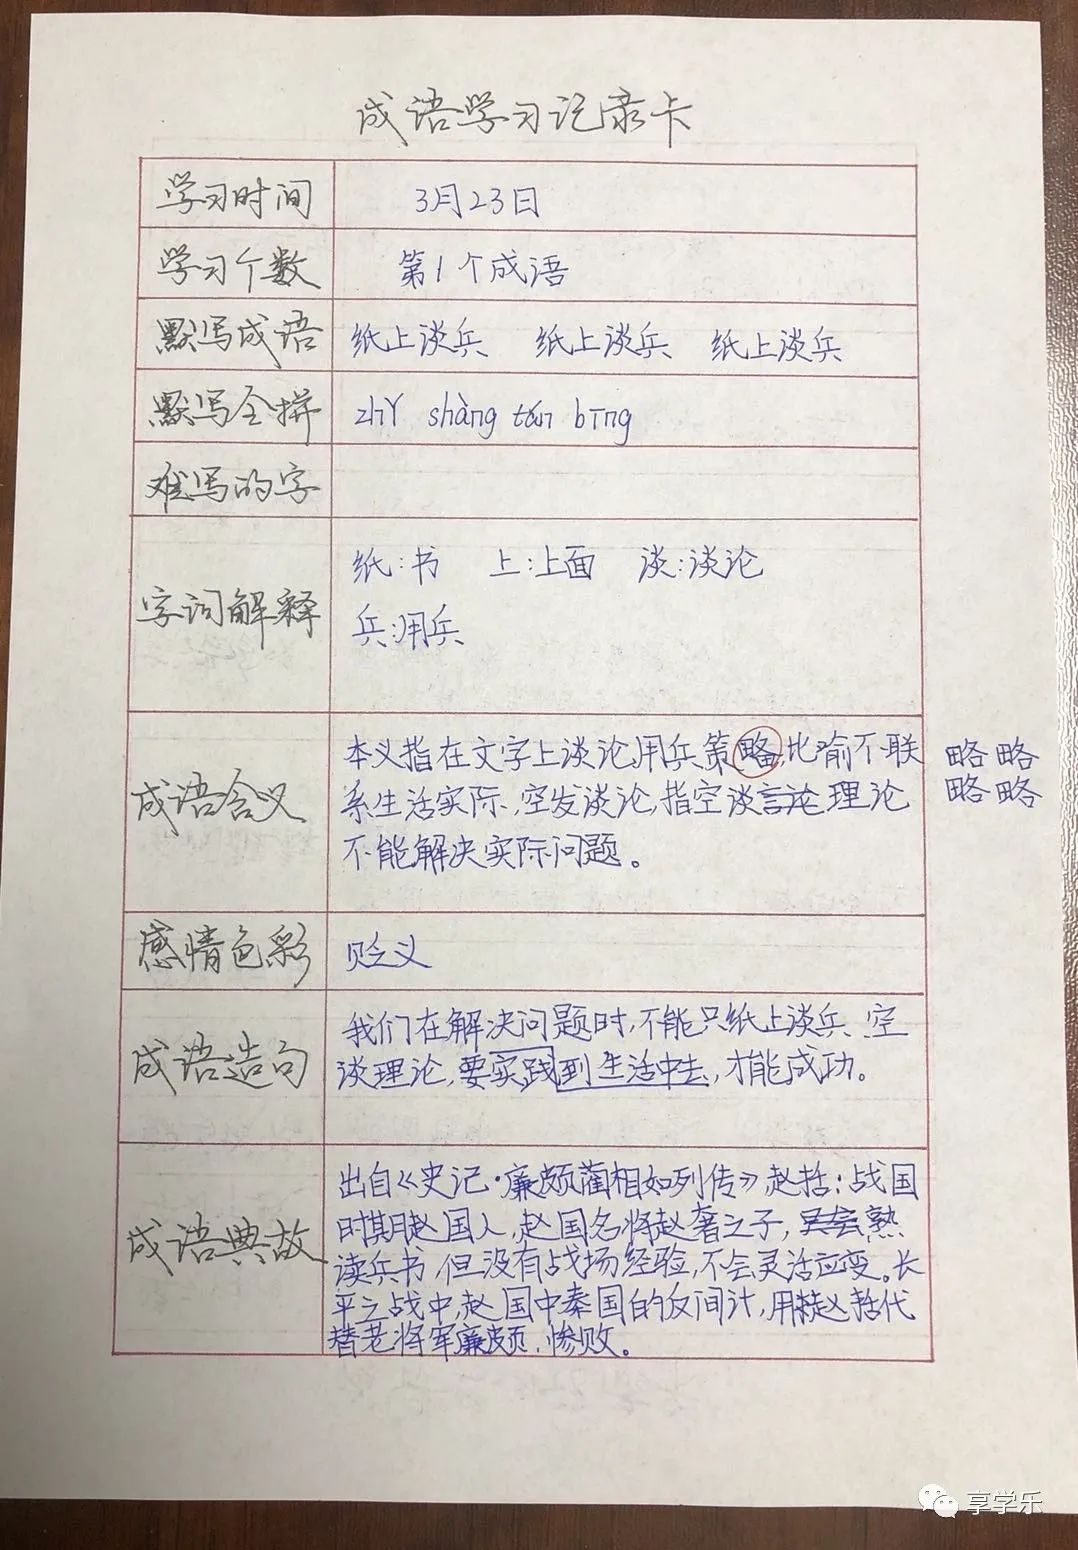 成语学习记录卡
学习时间 3月23日
学习个数 第1个成语
默写成语 纸上谈兵 纸上谈兵 纸上谈兵
默写全拼 zhǐ shàng tán bīng
难写的字
字词解释
纸:书 上:上面 谈:谈论
兵:用兵
成语含义
本义指在文字上谈论用兵策略,比喻不联
系生活实际、空发谈论,指空谈言论理论
不能解决实际问题。
略略
略略
感情色彩 贬义
成语造句
我们在解决问题时,不能只纸上谈兵、空
谈理论,要实践到生活中去,才能成功。
成语典故
出自《史记·廉颇蔺相如列传》,赵哲:战国
时期赵国人,赵国名将赵奢之子,熟
读兵书,但没有战场经验,不会灵活应变。长
平之战中,赵国中秦国的反间计,用赵哲代
替老将军廉颇,惨败。
享学乐